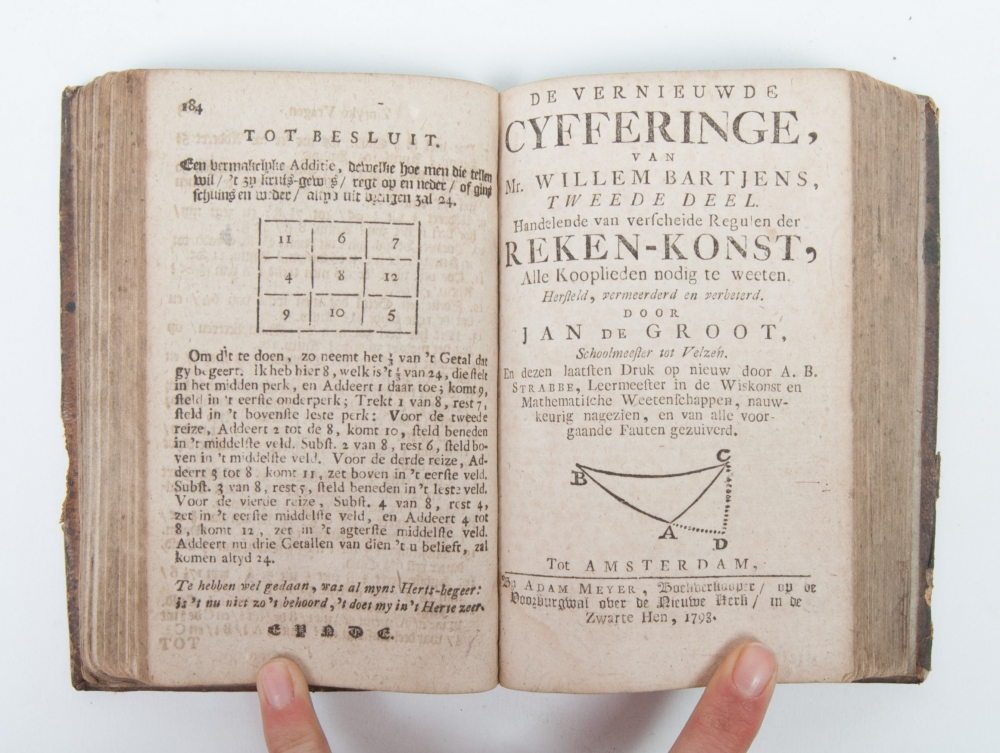 184
TOT BESLUIT.
Een vermakelyke Additie, dewelke hoe men die tellen
wil / 't zy kruis-gewys / regt op en neder / of gins
schuins en weder / altyd uit brengen zal 24.
11 6 7
4 8 12
9 10 5
Om dit te doen, zo neemt het ⅓ van 't Getal dat
gy begeert. Ik heb hier 8, welk is 't ⅓ van 24, die stelt
in het midden perk, en Addeert 1 daar toe; komt 9,
steld in 't eerste onderperk; Trekt 1 van 8, rest 7,
steld in 't bovenste leste perk: Voor de tweede
reize, Addeert 2 tot de 8, komt 10, steld beneden
in 't middelste veld. Subst. 2 van 8, rest 6, steld bo-
ven in 't middelste veld. Voor de derde reize, Ad-
deert 3 tot 8 komt 11, zet boven in 't eerste veld.
Subst. 3 van 8, rest 5, steld beneden in 't leste veld.
Voor de vierde reize, Subst. 4 van 8, rest 4,
zet in 't eerste middelste veld, en Addeert 4 tot
8, komt 12, zet in 't agterste middelste veld.
Addeert nu drie Getallen van dien 't u belieft, zal
komen altyd 24.
Te hebben wel gedaan, was al mynt Herts-begeer:
is 't nu niet zo 't behoord, 't doet my in 't Herte zeer.
EYNDE.
DE VERNIEUWDE
CYFFERINGE,
VAN
Mr. WILLEM BARTJENS,
TWEEDE DEEL.
Handelende van verscheide Regulen der
REKEN-KONST,
Alle Kooplieden nodig te weeten.
Hersteld, vermeerderd en verbeterd.
DOOR
JAN DE GROOT,
Schoolmeester tot Velzen.
En dezen laatsten Druk op nieuw door A. B.
STRABBE, Leermeester in de Wiskonst en
Mathematische Weetenschappen, nauw-
keurig nagezien, en van alle voor-
gaande Fauten gezuiverd.
B C
A D
Tot AMSTERDAM,
By ADAM MEYER, Boekverkooper / op de
Voorburgwal over de Nieuwe Kerk / in de
Zwarte Hen, 1793.